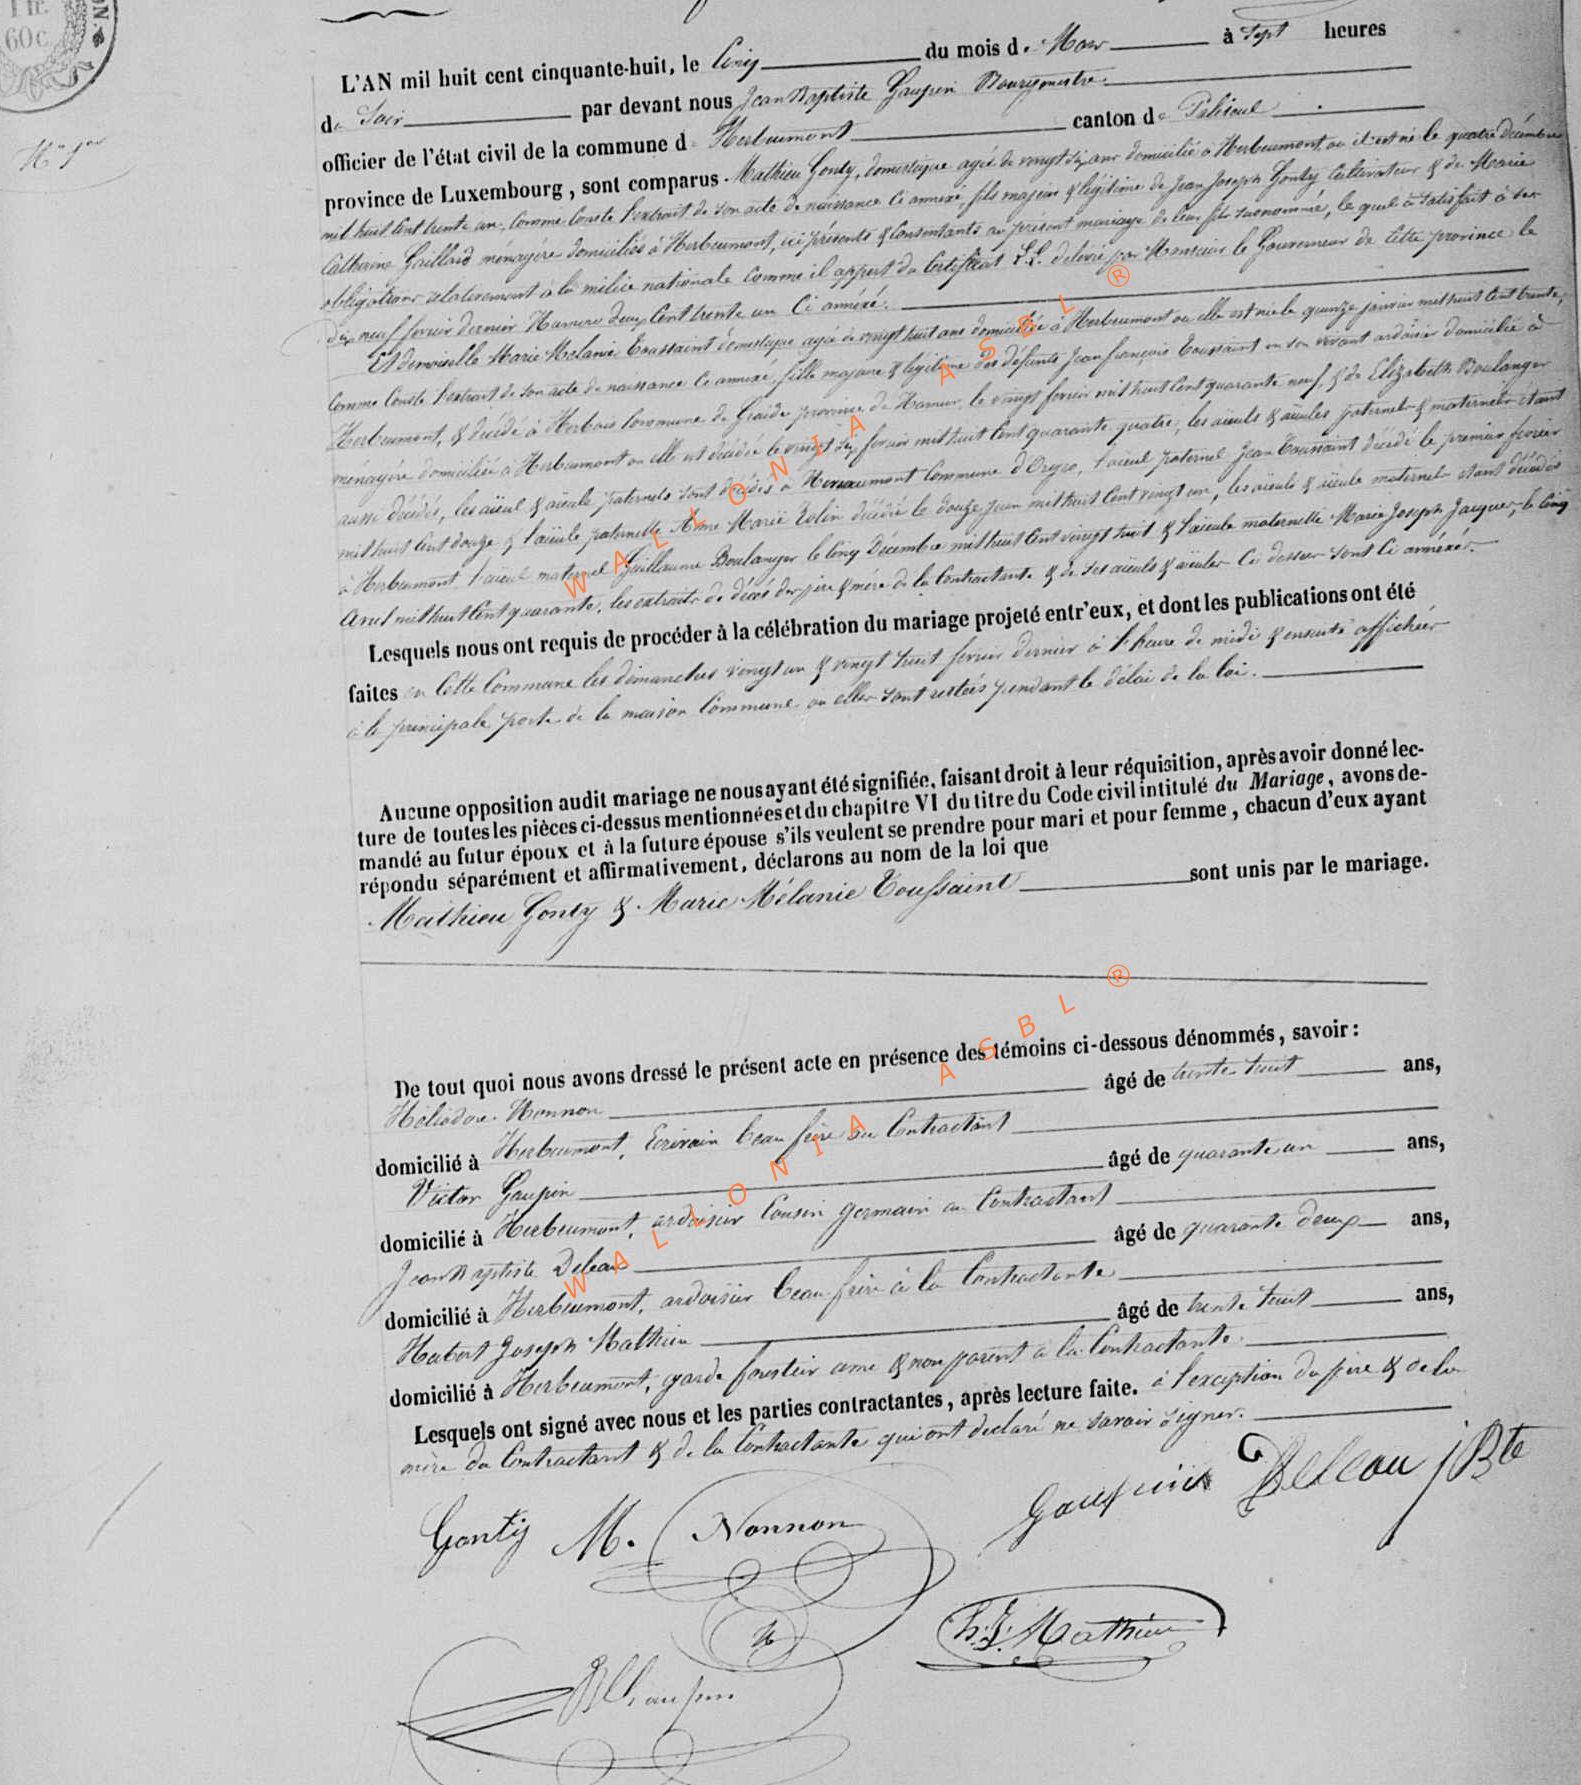 1 fr.
60 c.
ON.
L'AN mil huit cent cinquante-huit, le Cinq du mois de Mars à sept heures
du Soir par devant nous Jean Baptiste Gaupin Bourgmestre
officier de l'état civil de la commune d Herbeumont canton de Paliseul
province de Luxembourg, sont comparus Mathieu Gonty, domestique agé de vingt six ans domicilié à Herbeumont, ou il est né le quatre décembre
mil huit Cent trente un, Comme Conste l'extrait de son acte de naissance Ci annexé, fils majeur & légitime de Jean Joseph Gonty Cultivateur & de Marie
Catherine Gaillard ménagère domiciliés à Herbeumont, ici présents & Consentants au présent mariage de leur fils susnommé, le quel à satisfait à ses
obligations relativement à la milice nationale Comme il appert du Certificat L.L. délivré par Monsieur le Gouverneur de Cette province le
dix neuf fevrier dernier Numero deux Cent trente un Ci annéxé.
Et demoiselle Marie Melanie Toussaint domestique agée de vingt huit ans domiciliée à Herbeumont ou elle est née le quinze janvier mil huit Cent trente,
Comme Conste l'extrait de son acte de naissance Ci annexé, fille majeure & legitime des défunts Jean françois Toussaint en son vivant ardoisier domicilié à
Herbeumont, & décédé à Herbois Commune de Graide province de Namur, le vingt fevrier mil huit Cent quarante neuf, & de Elizabeth Boulanger
ménagère domiciliée à Herbeumont ou elle est décédée le vingt six fevrier mil huit Cent quarante quatre, les aïeuls & aïeules paternels & maternels étant
aussi décédés, les aïeul & aïeule paternels sont décédés à Commune d'Orgeo, l'aïeul paternel Jean Toussaint décédé le premier fevrier
mil huit Cent douze & l'aïeule paternelle Anne Marie décédée le douze juin mil huit Cent vingt un, les aïeuls & aïeule maternels étant décédés
à Herbeumont l'aïeul maternel Guillaume Boulanger le Cinq Décembre mil huit Cent vingt huit & l'aïeule maternelle Marie Joseph Jacques, le Cinq
Avril mil huit Cent quarante, les extraits de décés des père & mère de la Contractante & de ses aïeuls & aïeules Ci dessus sont Ci annéxés.
Lesquels nous ont requis de procéder à la célébration du mariage projeté entr'eux, et dont les publications ont été
faites en Cette Commune les dimanches vingt un & vingt huit fevrier dernier à l'heure de midi & ensuite affichées
à la principale porte de la maison Commune ou elles sont restées pendant le délai de la loi.
Aucune opposition audit mariage ne nous ayant été signifiée, faisant droit à leur réquisition, après avoir donné lec-
ture de toutes les pièces ci-dessus mentionnées et du chapitre VI du titre du Code civil intitulé du Mariage, avons de-
mandé au futur époux et à la future épouse s'ils veulent se prendre pour mari et pour femme, chacun d'eux ayant
répondu séparément et affirmativement, déclarons au nom de la loi que
Mathieu Gonty & Marie Mélanie Toussaint sont unis par le mariage.
De tout quoi nous avons dressé le présent acte en présence des témoins ci-dessous dénommés, savoir :
Héliodore Nonnon âgé de trente huit ans,
domicilié à Herbeumont, Ecrivain beau frère au Contractant
Victor Gaupin âgé de quarante un ans,
domicilié à Herbeumont, ardoisier Cousin germain au Contractant
Jean Baptiste Deleau âgé de quarante deux ans,
domicilié à Herbeumont, ardoisier beau frère à la Contractante
Hubert Joseph Mathieu âgé de trente huit ans,
domicilié à Herbeumont, garde forestier ami & non parent à la Contractante
Lesquels ont signé avec nous et les parties contractantes, après lecture faite. à l'exception du père & de la
mère du Contractant & de la Contractante qui ont declaré ne savoir signer.
Gonty M. Nonnon Gaupin Deleau jBte
h.j. Mathieu
JB Gaupin
WALLONIA ASBL ®
WALLONIA ASBL ®